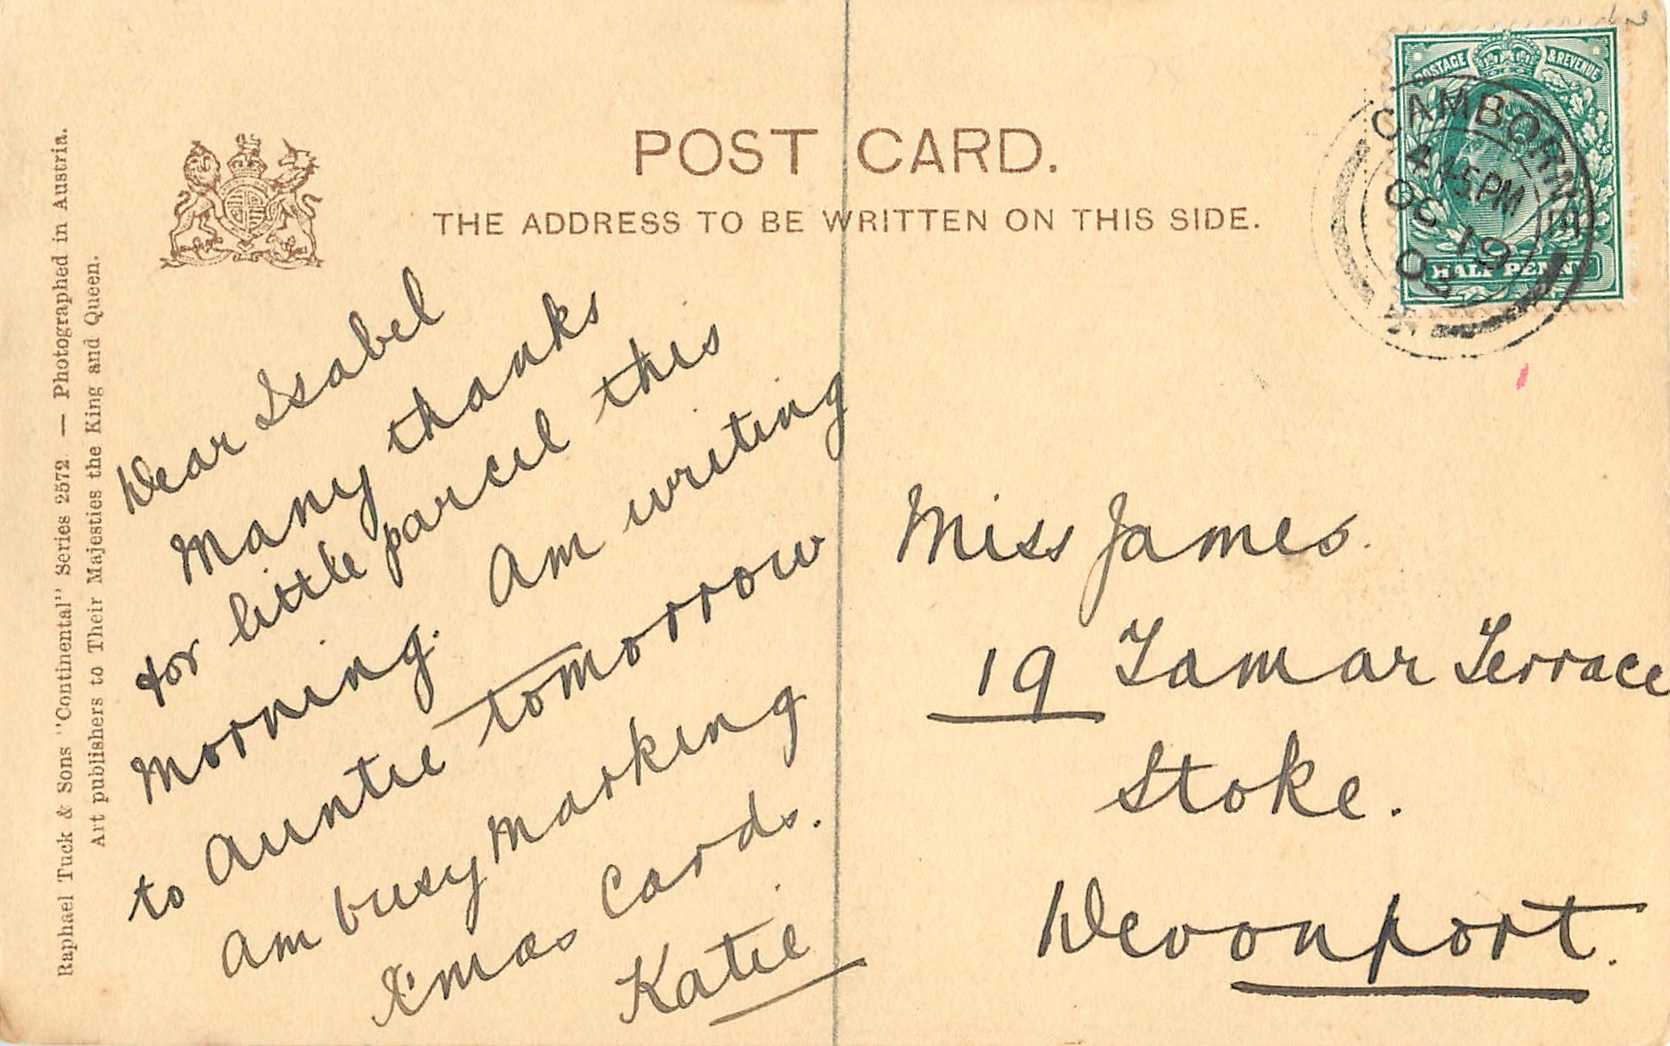 POST CARD.
THE ADDRESS TO BE WRITTEN ON THIS SIDE.
Raphael Tuck & Sons "Continental" Series 2572 — Photographed in Austria.
Art publishers to Their Majesties the King and Queen.
POSTAGE & REVENUE
HALF PENNY
CAMBORNE
4 45 PM
OC 19
Dear Isabel
Many thanks
for little parcel this
morning. Am writing
to Auntie tomorrow
am busy marking
X'mas Cards.
Katie
Miss James.
19 Tamar Terrace
Stoke.
Devonport.